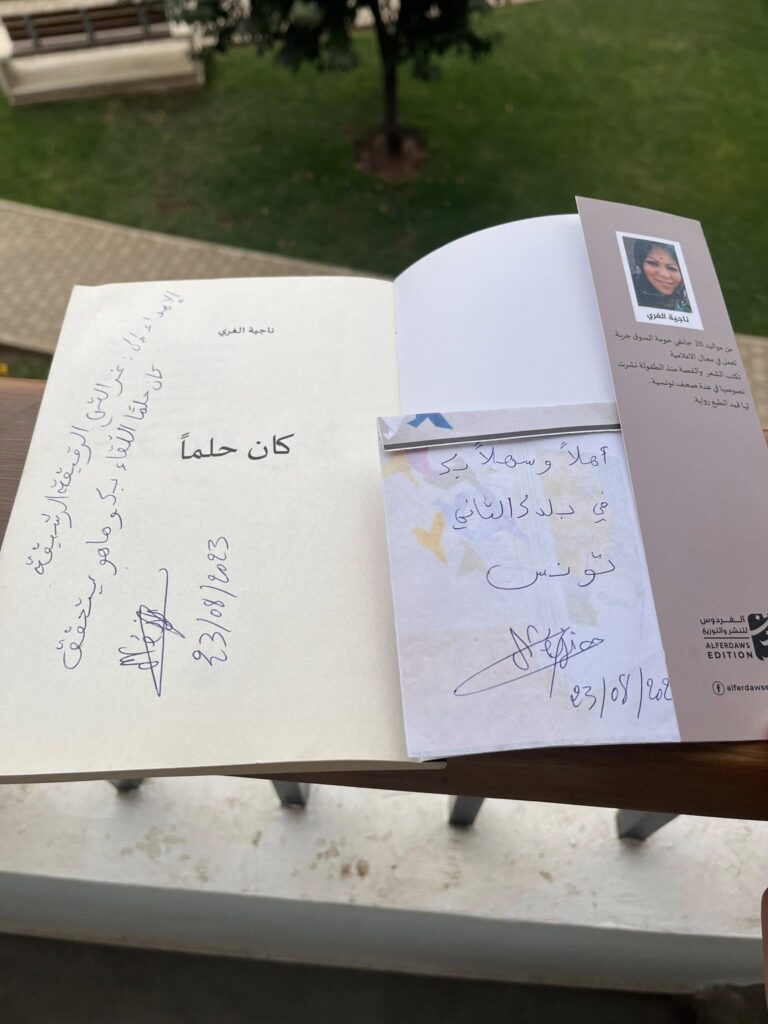 ناجية الغري
كان حلماً
الإهداء إلى: عزالتي الرقيقة الرشيقة
كان حلمًا اللقاء بكِ وها هو يتحقق
23/08/2023
أهلاً وسهلاً بكِ
في بلدكِ الثاني
تونس
23/08/202
ناجية الغري
من مواليد 26 جانفي حومة السوق جربة
تعمل في مجال الاعلامية
تكتب الشعر والقصة منذ الطفولة نشرت
نصوصها في عدة صحف تونسية.
لها قيد الطبع رواية.
الفردوس
للنشر والتوزيع
ALFERDAWS
EDITION
alferdawse